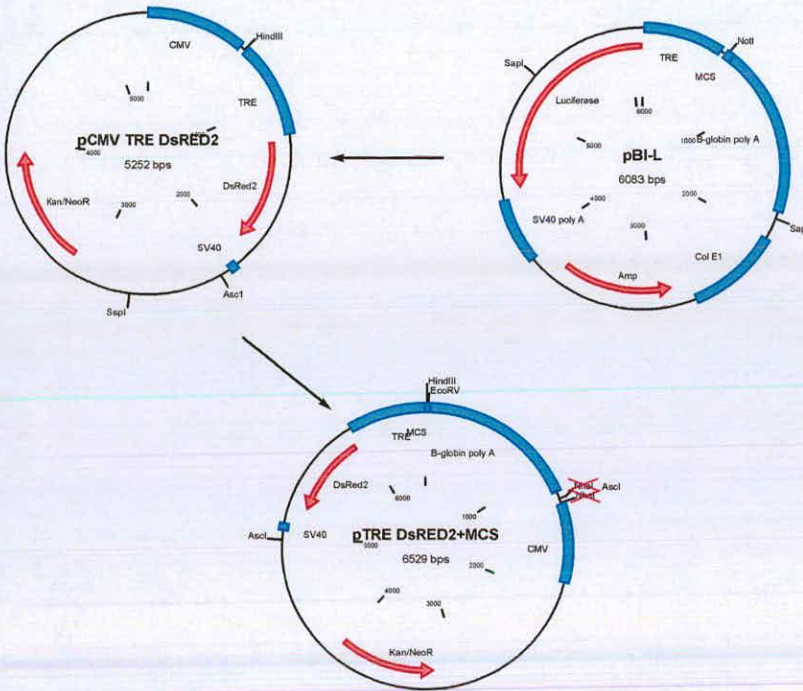 CMV
HindIII
TRE
5000
pCMV TRE DsRED2
4000
5252 bps
Kan/NeoR
DsRed2
2000
3000
SV40
Asc1
SspI
NotI
TRE
SapI
MCS
Luciferase
6000
5000
1000
B-globin poly A
pBI-L
6083 bps
2000
4000
SV40 poly A
3000
Col E1
Amp
HindIII
EcoRV
TRE
MCS
B-globin poly A
DsRed2
6000
AscI
1000
AscI
SV40
5000
pTRE DsRED2+MCS
CMV
6529 bps
2000
4000
3000
Kan/NeoR